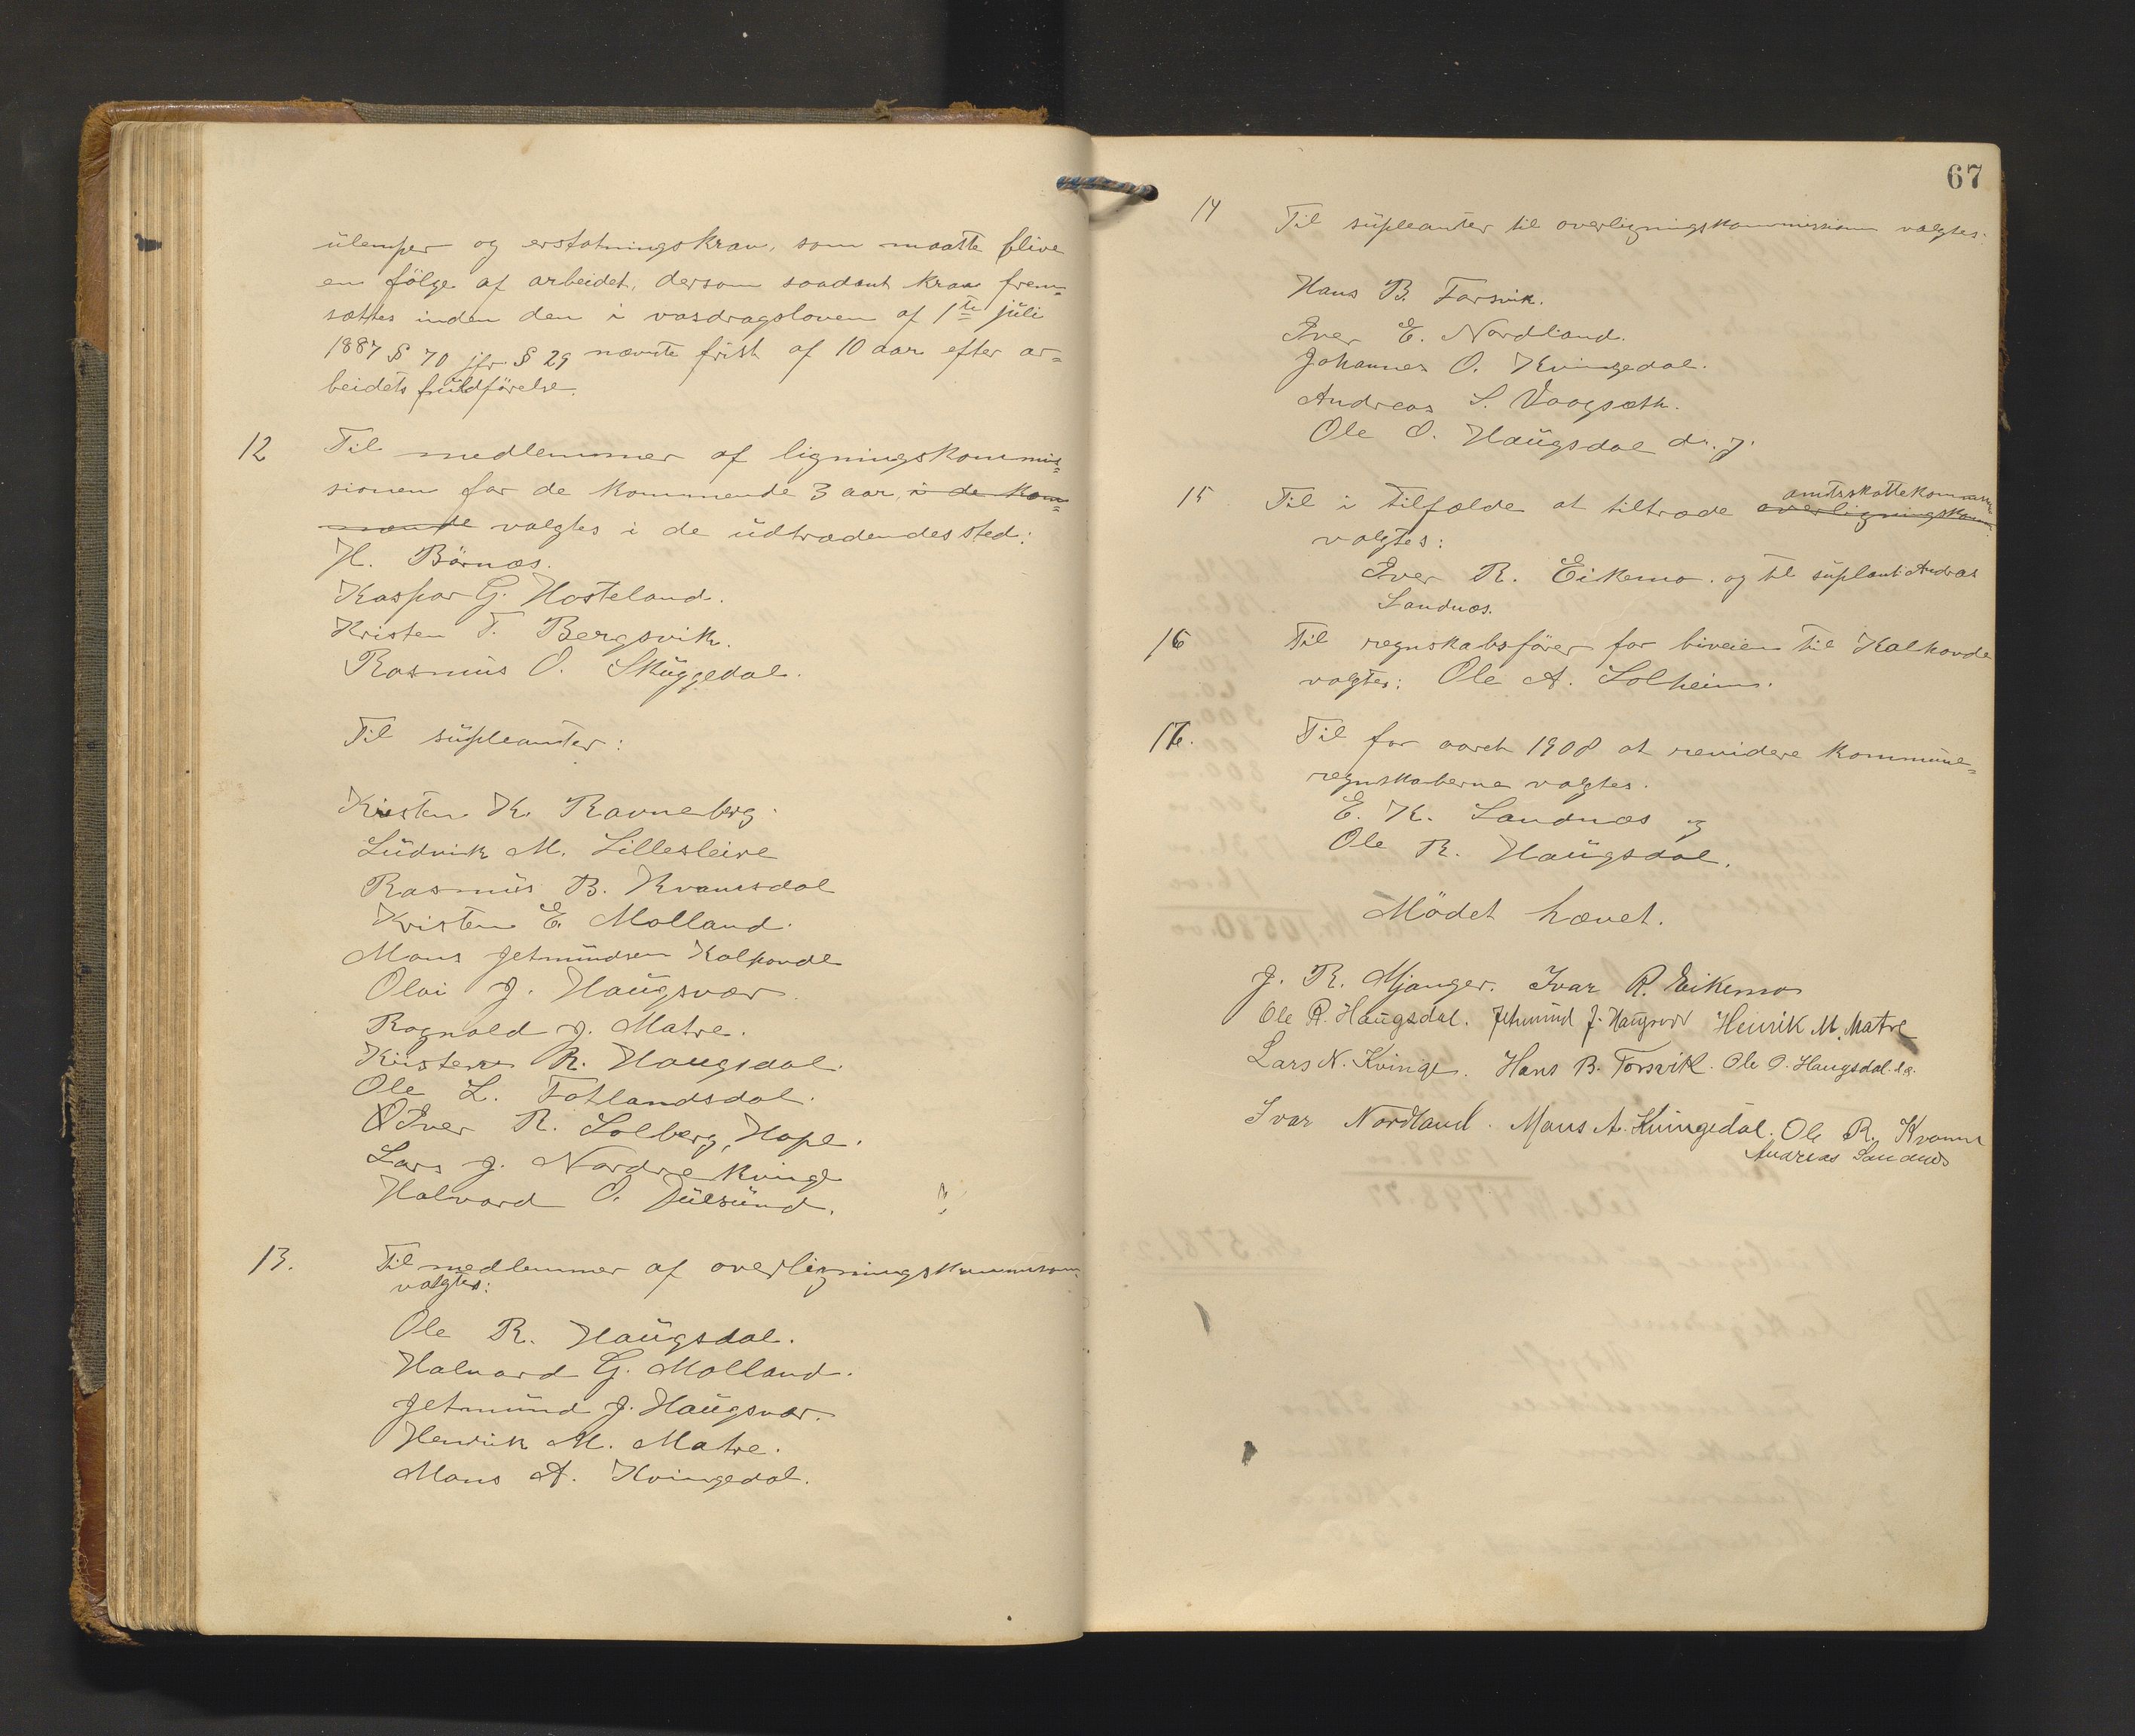 ulemper og erstatningskrav, som maatte blive
en følge af arbeidet, dersom saadant krav frem=
sættes inden den i vasdragsloven af 1ste juli
1887 § 70 jfr § 29 nævnte frist af 10 aar efter ar=
beidets fuldførelse.
12 Til medlemmer af ligningskommis=
sionen for de kommende 3 aar, i de kom=
mende valgtes i de udtrædendes sted:
H. Börnæs.
Kaspar G. Hosteland.
Kristen T. Bergsvik.
Rasmus O. Skuggedal.
Til supleanter:
Kristen K. Ravneberg.
Ludvik M. Lillesleire
Rasmus B. Kvamsdal
Kristen E. Molland.
Mons Jetmundsen Kalhovde
Olai J. Haugsvær.
Ragnald J. Matre.
Kristen R. Haugsdal.
Ole L. Fotlandsdal.
Iver R. Solberg, Hope.
Lars J. Nordre Kvinge
Halvard O. Dulsund.
13. Til medlemmer af overligningskommisionen
valgtes:
Ole R. Haugsdal.
Halvard G. Molland.
Jetmund J. Haugsvær.
Henrik M. Matre.
Mons A. Kvingedal.
67
14 Til supleanter til overligningskommissionen valgtes:
Hans B. Torsvik.
Iver E. Nordland.
Johannes O. Kvingedal.
Andreas S. Vaagsæth.
Ole O. Haugsdal d.y.
amtsskattekommis-
15 Til i tilfælde at tiltræde overligningskom-
valgtes:
Iver R. Eikemo. og til suplant Andreas
Sandnæs.
16 Til regnskabsfører for biveien til Kalhovde
valgtes: Ole A. Solheim.
17. Til for aaret 1908 at revidere kommune=
regnskaberne valgtes.
E. K. Sandnæs og
Ole R. Haugsdal.
Mödet hævet.
J. R. Mjanger. Ivar R. Eikemo
Ole R. Haugsdal. Jetmund J. Haugsvær Henrik M. Matre
Lars N. Kvinge. Hans B. Torsvik. Ole O. Haugsdal d.e.
Ivar Nordland. Mons A. Kvingedal. Ole R. Kvamme
Andreas Sandnæs